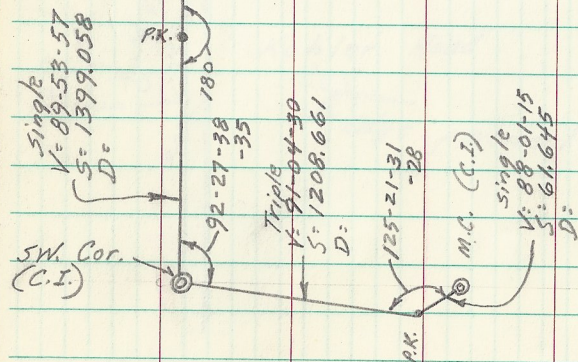 P.K.
180°
Single
V= 89-53-57
S= 1399.058
D=
92-27-38
-35
SW. Cor.
(C.I.)
Triple
V= 91-04-30
S= 1208.661
D=
125-21-31
-28
M.C. (C.I.)
Single
V= 88-01-15
S= 61.645
D=
P.K.